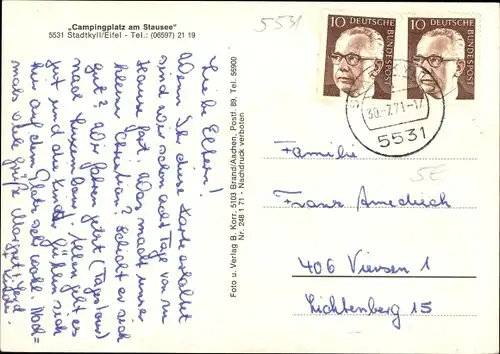 „Campingplatz am Stausee"
5531 Stadtkyll/Eifel - Tel.: (06597) 21 19
5531
10 DEUTSCHE BUNDESPOST
10 DEUTSCHE BUNDESPOST
30.-7.71-17
5531
Liebe Eltern!
Wenn Ihr diese Karte erhaltet
sind wir schon acht Tage von zu
Hause fort. Was macht unser
kleiner Christian? Schickt er sich
gut? Wir fahren jetzt (Tagestour)
nach Luxemburg. Allen geht es
gut und die Kinder fühlen sich
hier auf dem Platz sehr wohl. Noch=
mals viele Grüße Margret
+ Kinder
Foto u. Verlag B. Korr. 5103 Brand/Aachen, Postf. 89, Tel. 55900
Nr. 248 1 71 - Nachdruck verboten
Familie
5E
Franz
406 Viersen 1
Lichtenberg 15